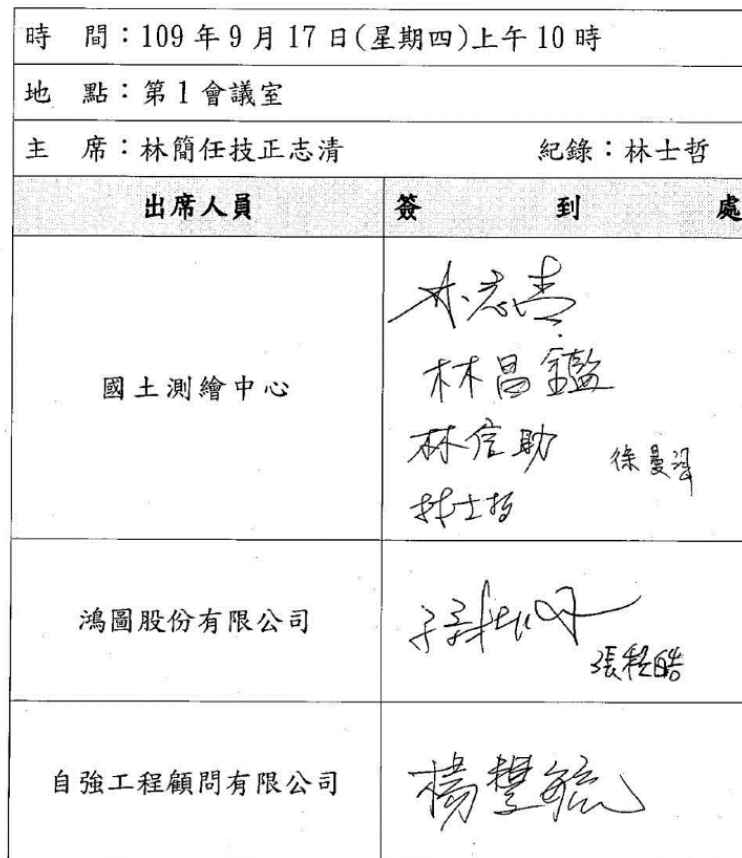 時 間：109 年 9 月 17 日(星期四)上午 10 時
地 點：第 1 會議室
主 席：林簡任技正志清 紀錄：林士哲
出席人員 簽 到 處
國土測繪中心
林志清
林昌鑑
林信助 徐曼
林士哲
鴻圖股份有限公司
張程皓
自強工程顧問有限公司
楊豐毓